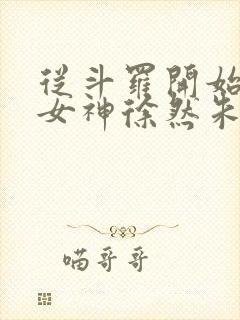 從斗羅開始
女神徐然朱
喵哥哥